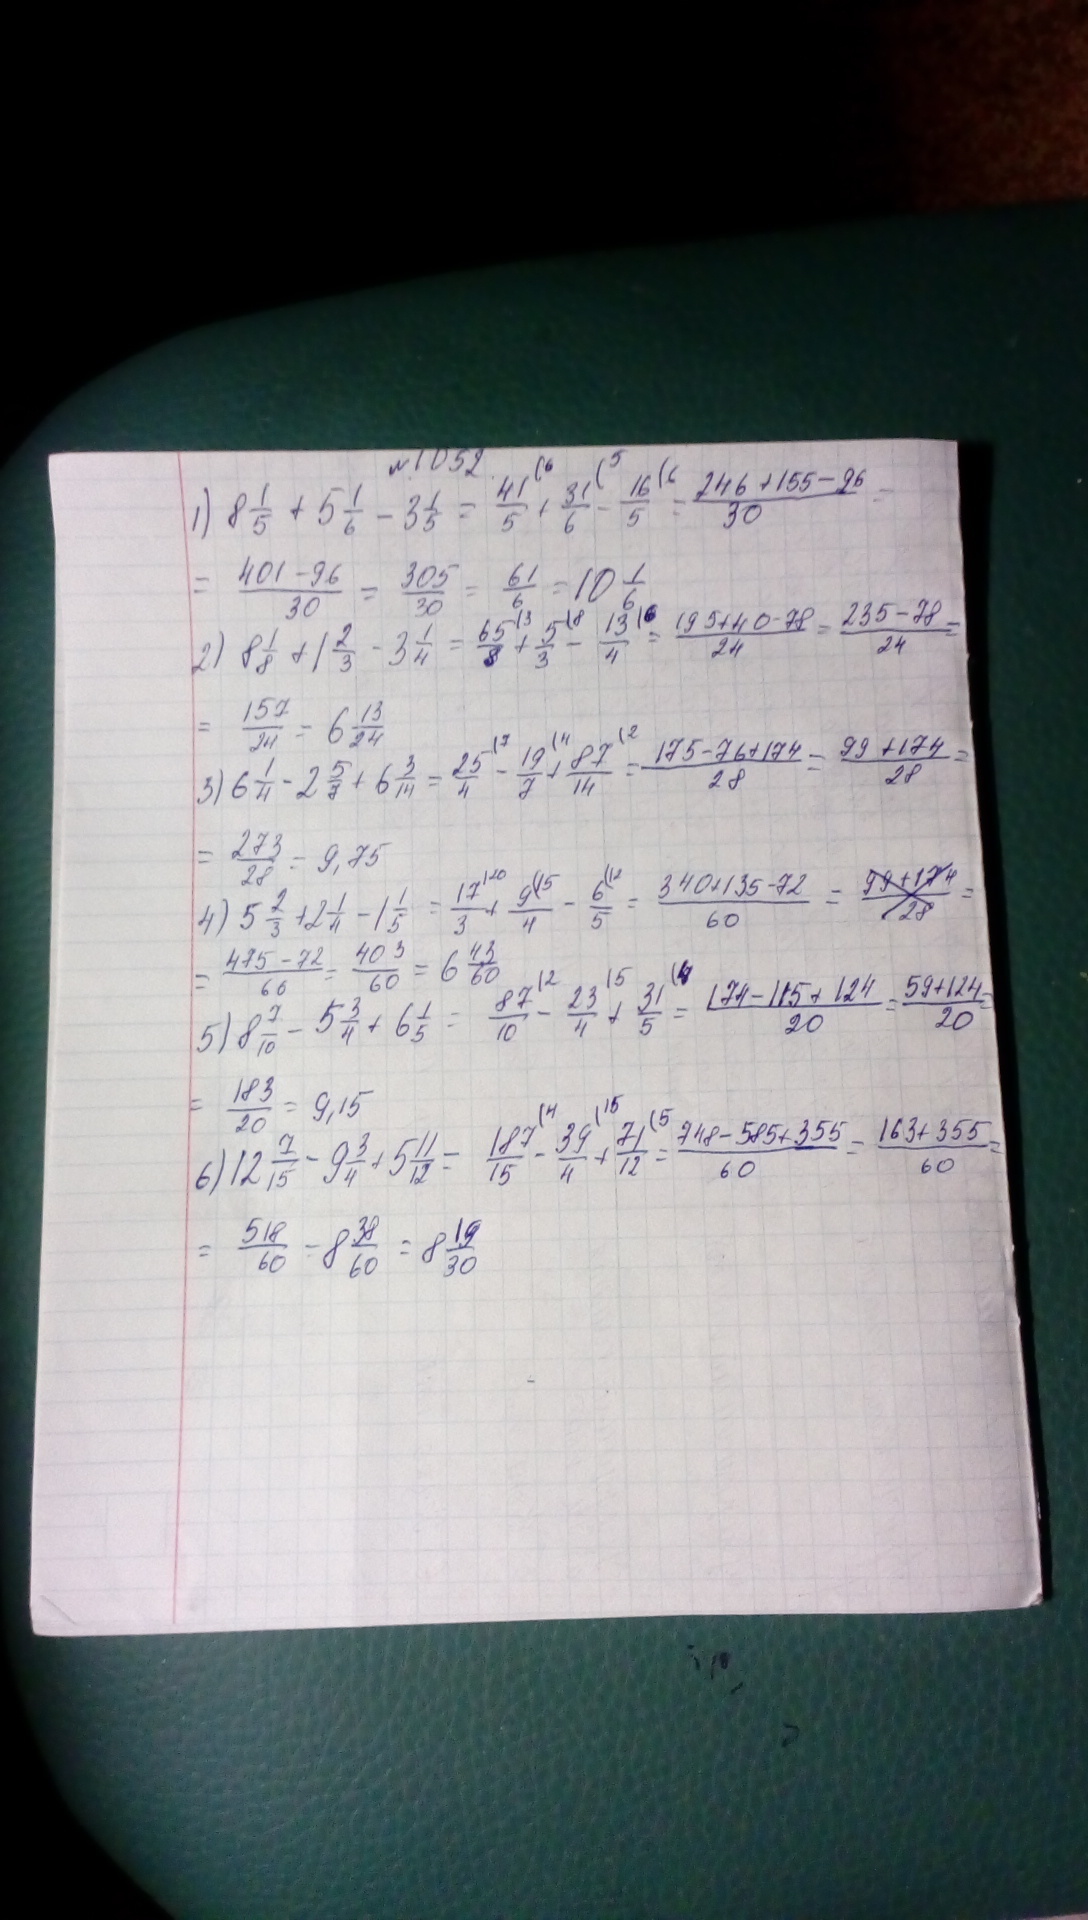 №1052.
1) 8 1/5 + 5 1/6 - 3 1/5 = 41/5 (6 + 31/6 (5 - 16/5 (6 = 246+155-96/30 =
= 401-96/30 = 305/30 = 61/6 = 10 1/6
2) 8 1/8 + 1 2/3 - 3 1/4 = 65/8 (3 + 5/3 (8 - 13/4 (6 = 195+40-78/24 = 235-78/24 =
= 157/24 = 6 13/24
3) 6 1/4 - 2 5/7 + 6 3/14 = 25/4 (7 - 19/7 (4 + 87/14 (2 = 175-76+174/28 = 99+174/28 =
= 273/28 = 9,75
4) 5 2/3 + 2 1/4 - 1 1/5 = 17/3 (20 + 9/4 (15 - 6/5 (12 = 340+135-72/60 = 99+174/28 =
= 475-72/60 = 403/60 = 6 43/60
5) 8 7/10 - 5 3/4 + 6 1/5 = 87/10 (2 - 23/4 (5 + 31/5 (4 = 174-115+124/20 = 59+124/20 =
= 183/20 = 9,15
6) 12 7/15 - 9 3/4 + 5 11/12 = 187/15 (4 - 39/4 (15 + 71/12 (5 = 748-585+355/60 = 163+355/60 =
= 518/60 = 8 38/60 = 8 19/30